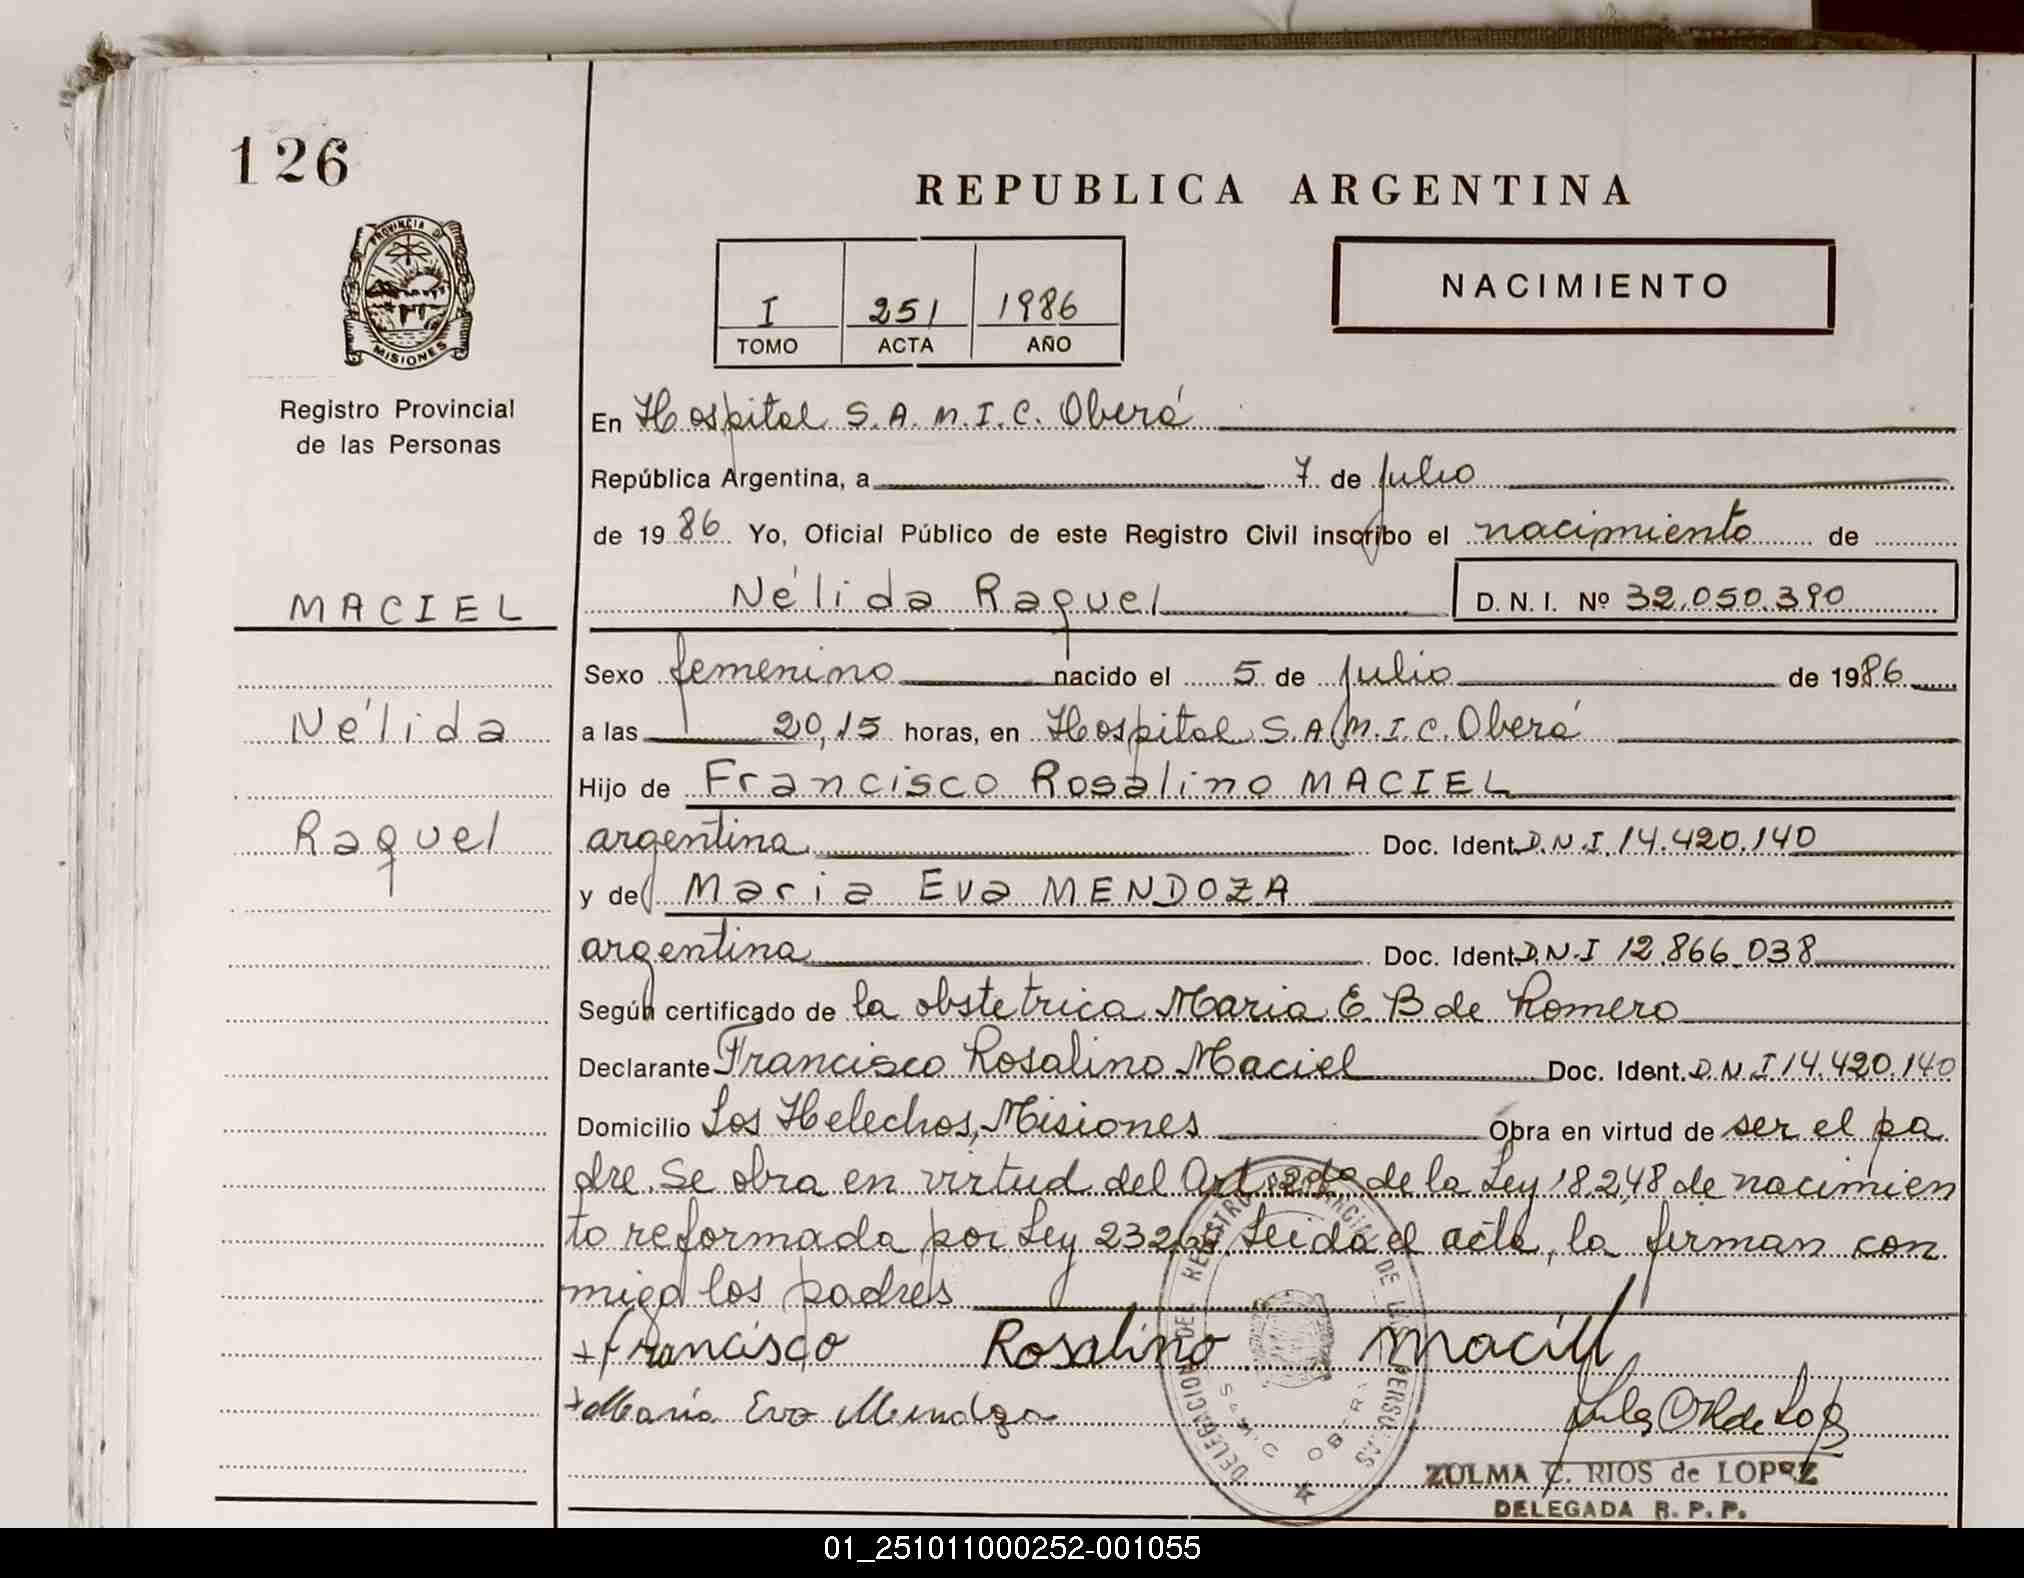 126
REPUBLICA ARGENTINA
PROVINCIA DE
MISIONES
NACIMIENTO
I 251 1986
TOMO ACTA AÑO
Registro Provincial
de las Personas
En Hospital S.A.M.I.C. Oberá
República Argentina, a 7 de julio
de 1986 Yo, Oficial Público de este Registro Civil inscribo el nacimiento de
MACIEL
Nélida Raquel D.N.I. Nº 32.050.390
Sexo femenino nacido el 5 de julio de 1986
Nélida
a las 20,15 horas, en Hospital S.A.M.I.C. Oberá
Hijo de Francisco Rosalino MACIEL
Raquel
argentina Doc. Ident. D.N.I. 14.420.140
y de Maria Eva MENDOZA
argentina Doc. Ident. D.N.I 12.866.038
Según certificado de la obstetrica Maria E. B de Romero
Declarante Francisco Rosalino Maciel Doc. Ident. D.N.I 14.420.140
Domicilio Los Helechos, Misiones Obra en virtud de ser el pa
dre. Se obra en virtud del Art. 2do de la Ley 18.248 de nacimien
to reformada por Ley Leida el acta, la firman con
migo los padres
+ Francisco Rosalino Maciel
+ Maria Eva Mendoza
DELEGACION DEL REGISTRO PROVINCIAL DE LAS PERSONAS
S.A.M.I.C. OBERA
ZULMA C. RIOS de LOPEZ
DELEGADA R. P. P.
01_251011000252-001055